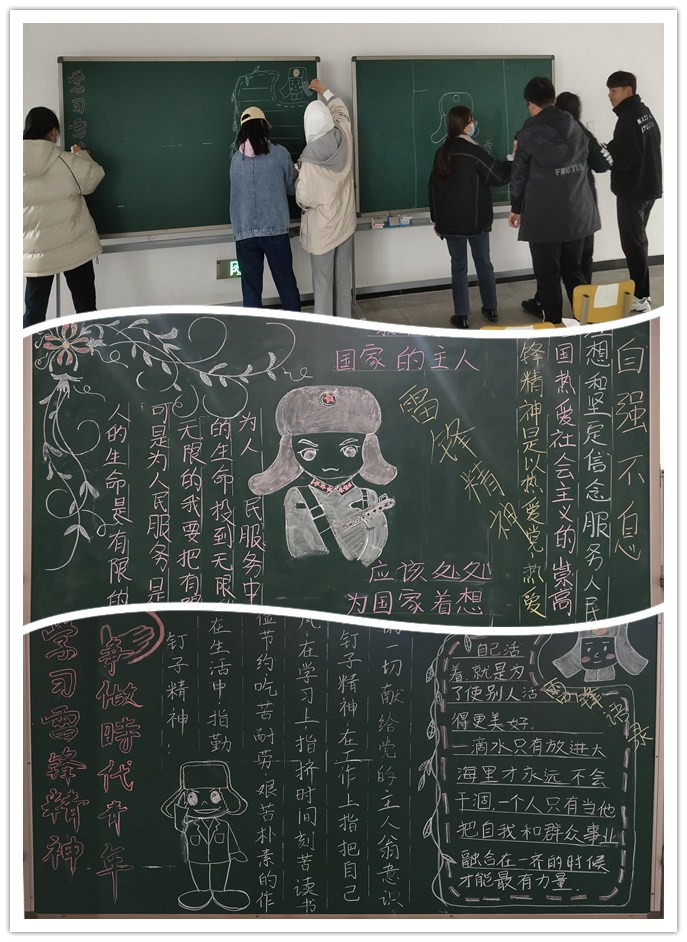 学习
国家的主人
人的生命是有限的
可是为人民服务是
无限的我要把有限
的生命投到无限
为人民服务中
雷锋精神
应该处处
为国家着想
锋精神是以热爱党热爱
国热爱社会主义的崇高
想和坚定信念服务人民
自强不息
学习雷锋精神
争做時代青年
钉子精神
在生活中指勤
俭节约.吃苦耐劳.艰苦朴素的作
风.在学习上指挤时间刻苦读书
钉子精神.在工作上指把自己
的一切献给党的主人翁意识.
雷锋语录
自己活
着.就是为
了使别人活
得更美好.
一滴水只有放进大
海里才永远不会
干涸.一个人只有当他
把自我和群众事业
融合在一齐的时候
才能最有力量.